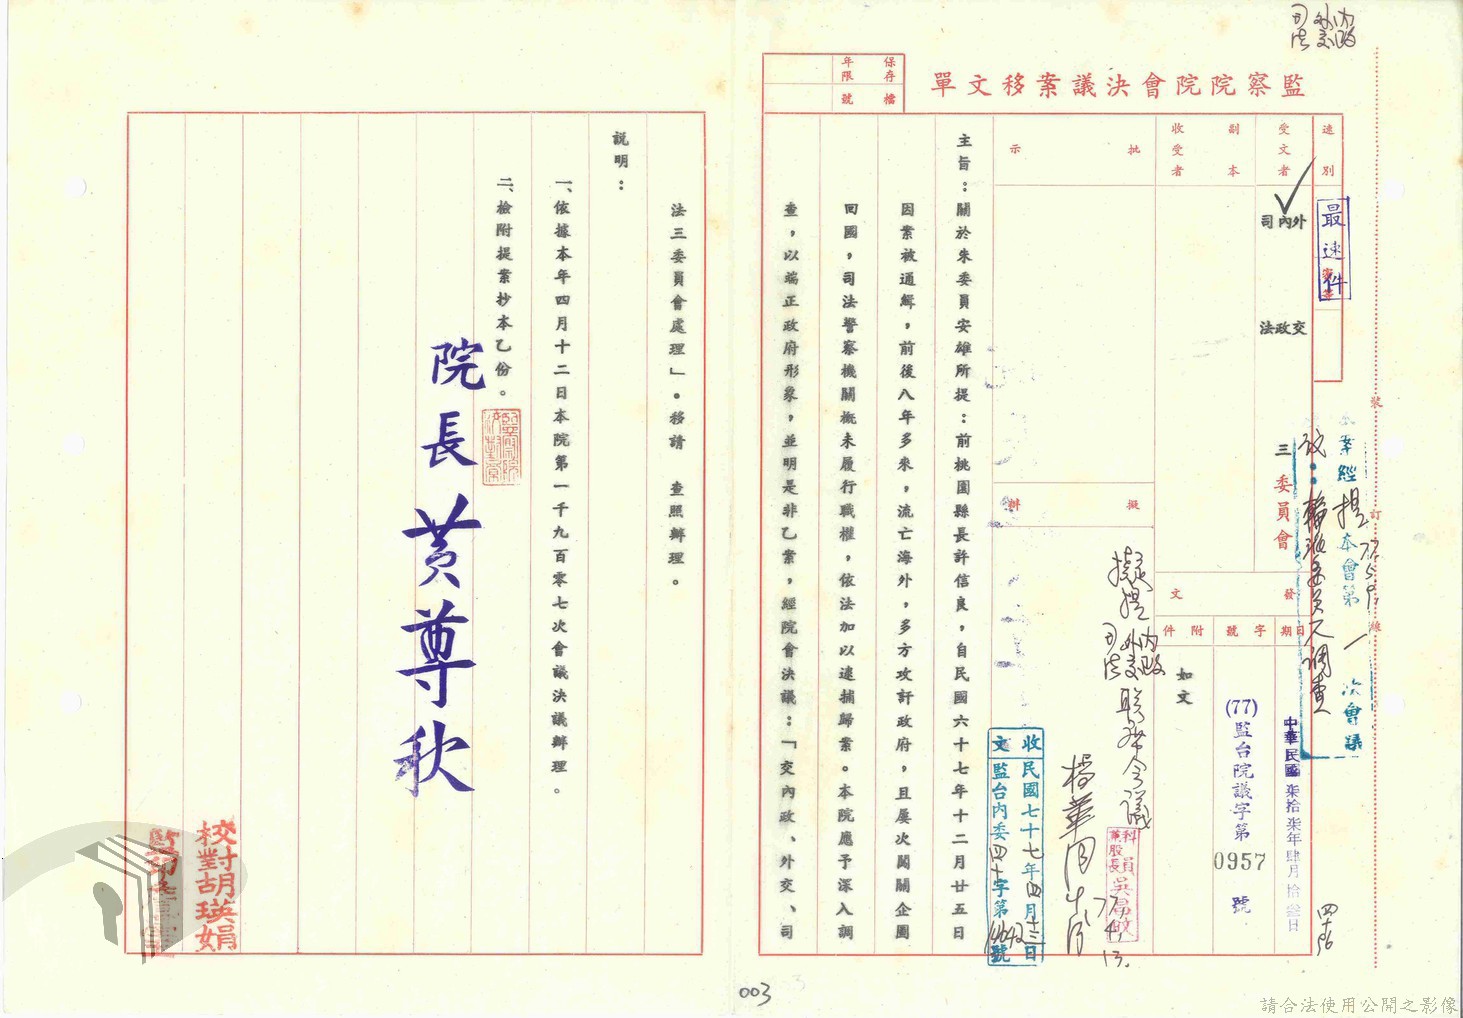 內政
外交
司法
監察院院會決議案移文單
保存年限
檔號
速別
最速件
受文者
內政
外交
司法
三委員會
副本收受者
發文
日期
中華民國柒拾柒年肆月拾叁日
字號
(77)監台院議字第0957號
附件
如文
批示
擬辦
擬提內政外交司法聯席會議
77.4.13.
科員兼股長
收文
民國七十七年四月十三日
監台內委四十字第號
本案經提本會第一次會議
77.5.9.
裝
訂
線
主旨：關於朱委員安雄所提：前桃園縣長許信良，自民國六十七年十二月廿五日
因案被通緝，前後八年多來，流亡海外，多方攻訐政府，且屢次闖關企圖
回國，司法警察機關概未履行職權，依法加以逮捕歸案。本院應予深入調
查，以端正政府形象，並明是非乙案，經院會決議：「交內政、外交、司
法三委員會處理」。移請　查照辦理。
說明：
一、依據本年四月十二日本院第一千九百零七次會議決議辦理。
二、檢附提案抄本乙份。
院長黃尊秋
校對胡瑛娟
003
請合法使用公開之影像